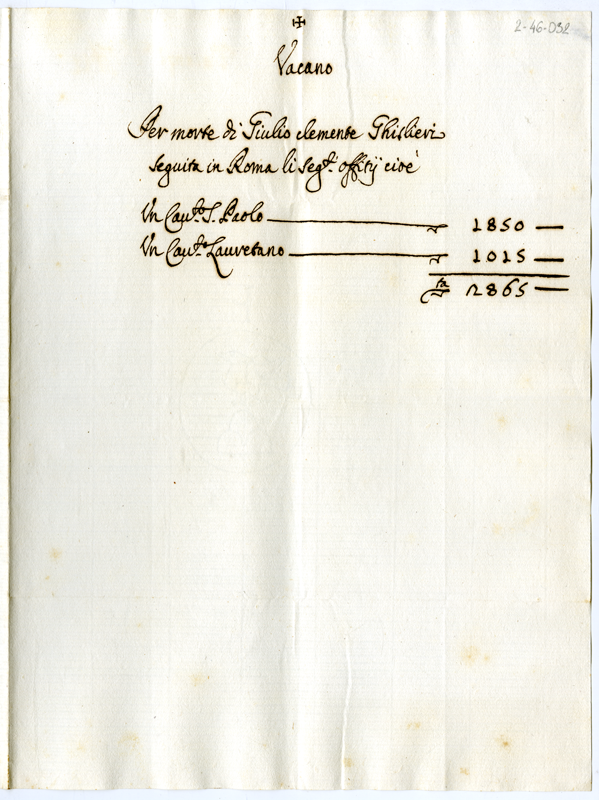 2-46-032
✠
Vacano
Per morte di Giulio clemente Ghislieri
seguita in Roma li seg.ti offitij cioè
Un Cau.to S. Paolo — 1850 —
Un Cau.to Lauretano — 1015 —
2865 —